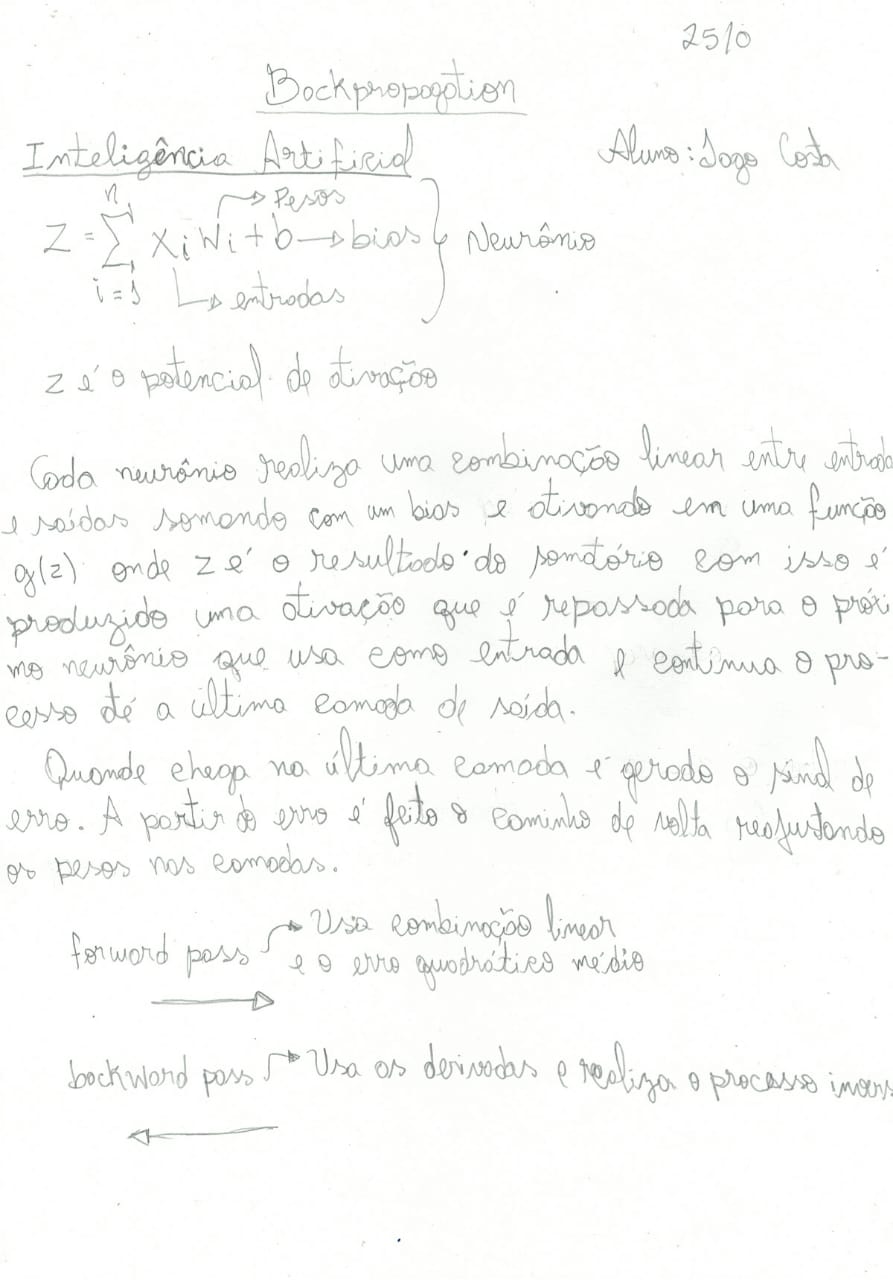 2510
Backpropagation
Inteligência Artificial
Aluno: Iago Costa
Pesos
n
Z = ∑ xi wi + b → bias } Neurônio
i = 1
entradas
z é o potencial de ativação
Cada neurônio realiza uma combinação linear entre entrada
e saídas somando com um bias e ativando em uma função
g(z) onde z é o resultado do somatório com isso é
produzido uma ativação que é repassada para o próxi
mo neurônio que usa como entrada e continua o pro-
cesso até a última camada de saída.
Quande chega na última camada é gerado o sinal de
erro. A partir do erro é feito o caminho de volta reajustando
os pesos nas camadas.
forward pass → Usa combinação linear
e o erro quadrático médio
backward pass → Usa as derivadas e realiza o processo invers